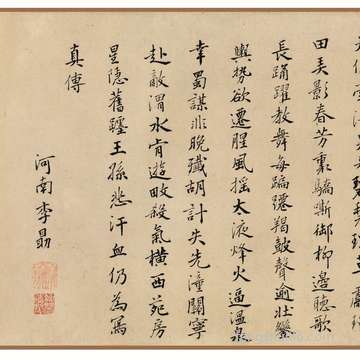 田美影春芳裏驕嘶御柳邊聽歌
長踊躍教舞每蹁躚羯鼓聲逾壯鑾
輿勢欲遷腥風搖太液烽火逼溫泉
幸蜀謀非晚殲胡計失先潼關寧
赴敵渭水肯遊畋殺氣橫西苑房
星隱舊躔王孫悲汗血仍為寫
真傳
河南李勗